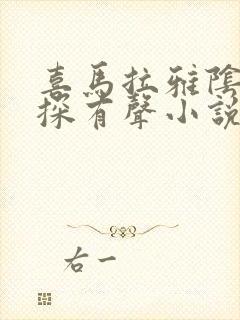 喜馬拉雅陰
探有聲小說
右一